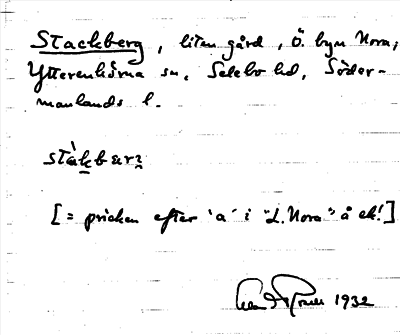 Stackberg, liten gård, Ö. byn Nora,
Ytterenhörna sn, Selebo hd, Söder-
manlands l.
[= pricken efter 'a' i "L. Nora" å ek!]
1932